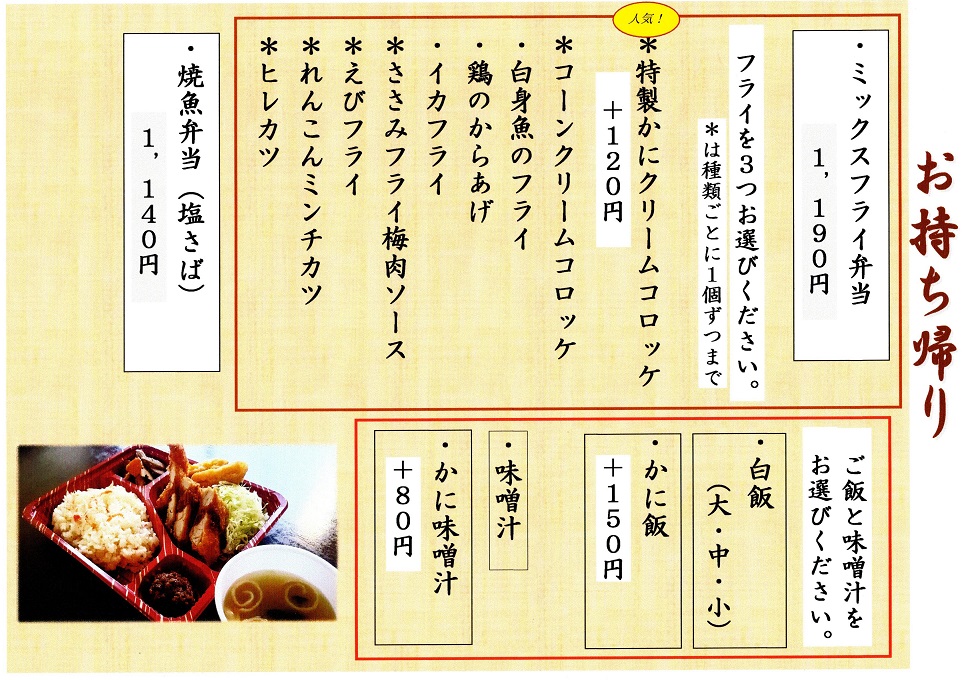 お持ち帰り
・ミックスフライ弁当
１，１９０円
フライを３つお選びください。
＊は種類ごとに１個ずつまで
人気！
＊特製かにクリームコロッケ
＋１２０円
＊コーンクリームコロッケ
・白身魚のフライ
・鶏のからあげ
・イカフライ
＊ささみフライ梅肉ソース
＊えびフライ
＊れんこんミンチカツ
＊ヒレカツ
・焼魚弁当（塩さば）
１，１４０円
ご飯と味噌汁を
お選びください。
・白飯
（大・中・小）
・かに飯
＋１５０円
・味噌汁
・かに味噌汁
＋８０円